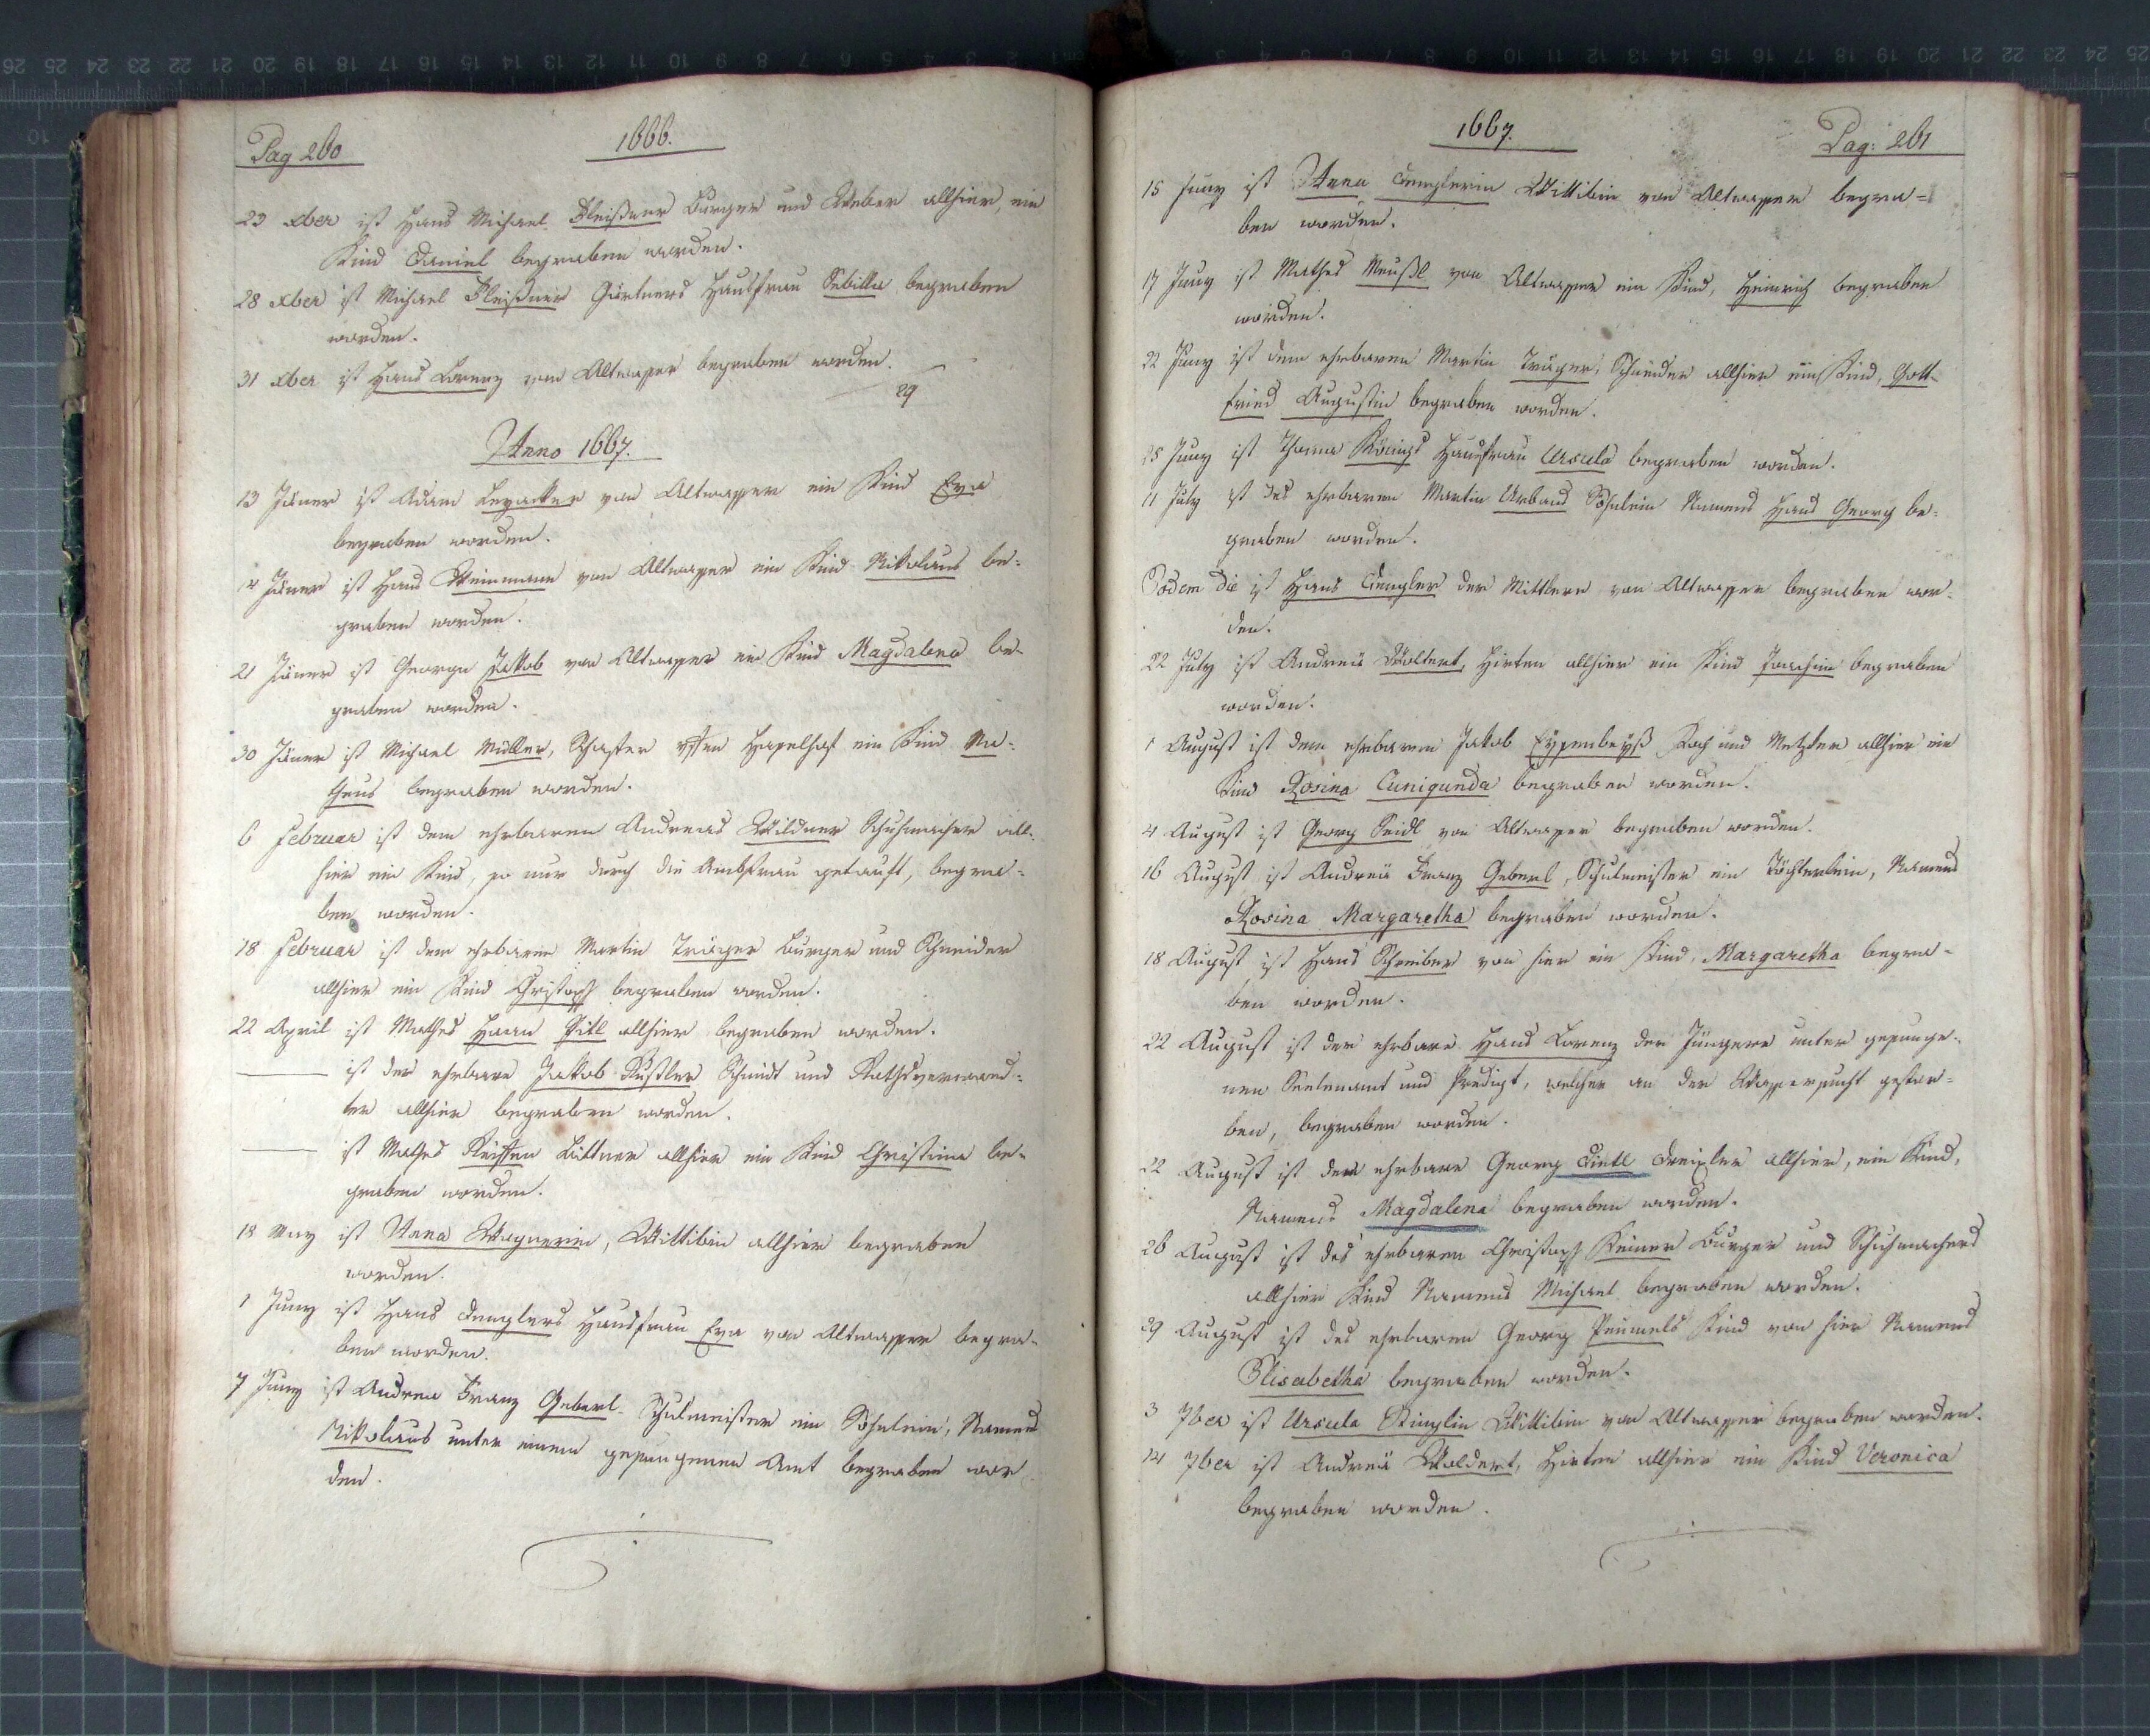 Pag 260
1666.
23 xber ist Hans Michael Pleißner Burger und Weber allhier, ein
Kind Daniel begraben worden.
28 xber ist Michael Pleißner Gärtners Hausfrau Sebilla begraben
worden.
31 xber ist Hans Lorenz von Altwasser begraben worden.
29
Anno 1667.
13 Jäner ist Adam Lexacker von Altwasser ein Kind Eva
begraben worden.
14 Jäner ist Hans Weinmann von Altwasser ein Kind Nikolaus be-
graben worden.
21 Jäner ist Georgn Jakob von Altwasser ein Kind Magdalena be-
graben worden.
30 Jäner ist Michael Müller, Schaffer ein Kind Ma-
theus begraben worden.
6 Februar ist dem ehrbaren Andreas Wildner Schuhmacher all-
hier ein Kind, so nur durch die Ambfrau getauft, begra-
ben worden.
18 Februar ist dem ehrbaren Martin Träger Burger und Schneider
allhier ein Kind Christoph begraben worden.
22 April ist Mathes Haan Pitl allhier begraben worden.
ist der ehrbare Jakob Rußler Schmidt und Rathsverwand-
ter allhier begraben worden.
ist Mathes Büttner allhier ein Kind Christina be-
graben worden.
18 May ist Anna Wagnerin, Wittibin allhier begraben
worden.
1 Juny ist Hans Denglers Hausfrau Eva von Altwasser begra-
ben worden.
7 Juny ist Andrea Franz Geberl Schulmeister ein Söhnlein, Namens
Nikolaus unter einem gesungenen Amt begraben wor
den.
1667.
Pag: 261
15 Juny ist Anna Denglerin Wittibin von Altwasser begra=
ben worden.
17 Juny ist Mathes Meußl von Altwasser ein Kind, Heinrich begraben
worden.
22 Juny ist dem ehrbaren Martin Träger, Schneider allhier ein Kind, Gott-
fried Augustin begraben worden.
25 Juny ist Thoma Königs Hausfrau Ursula begraben worden.
11 July ist des ehrbaren Martin Urbans Söhnlein Namens Hans Georg be-
graben worden.
Eodem die ist Hans Dengler der Mittlere von Altwasser begraben wor-
den.
22 July ist Andreä Woltert, Hirten allhier ein Kind Joachim begraben
worden.
1 August ist dem ehrbaren Jakob Eyßenbeyß Koch und Metzler allhier ein
Kind Rosina Cunigunda begraben worden.
4 August ist Georg Seidl von Altwasser begraben worden.
16 August ist Andreä Franz Geberl, Schulmeister ein Töchterlein, Namens
Rosina Margaretha begraben worden.
18 August ist Hans Schreiber von hier ein Kind, Margaretha begra-
ben worden.
22 August ist der ehrbare Hans Lorenz der Jüngere unter gesunge-
nen Seelenamt und Predigt, welcher an der Wassersucht gestor-
ben, begraben worden.
22 August ist dem ehrbare Georg Dietl Dreixler allhier, ein Kind,
Namens Magdalena begraben worden.
26 August ist des ehrbaren Christoph Keiner Burger und Schuhmachers
allhier Kind Namens Michael begraben worden.
29 August ist des ehrbaren Georg Peumels Kind von hier Namens
Elisabetha begraben worden.
3 7ber ist Ursula Stinglin Wittibin von Altwasser begraben worden.
14 7ber ist Andreä Woldert, Hirten allhier ein Kind Veronica
begraben worden.